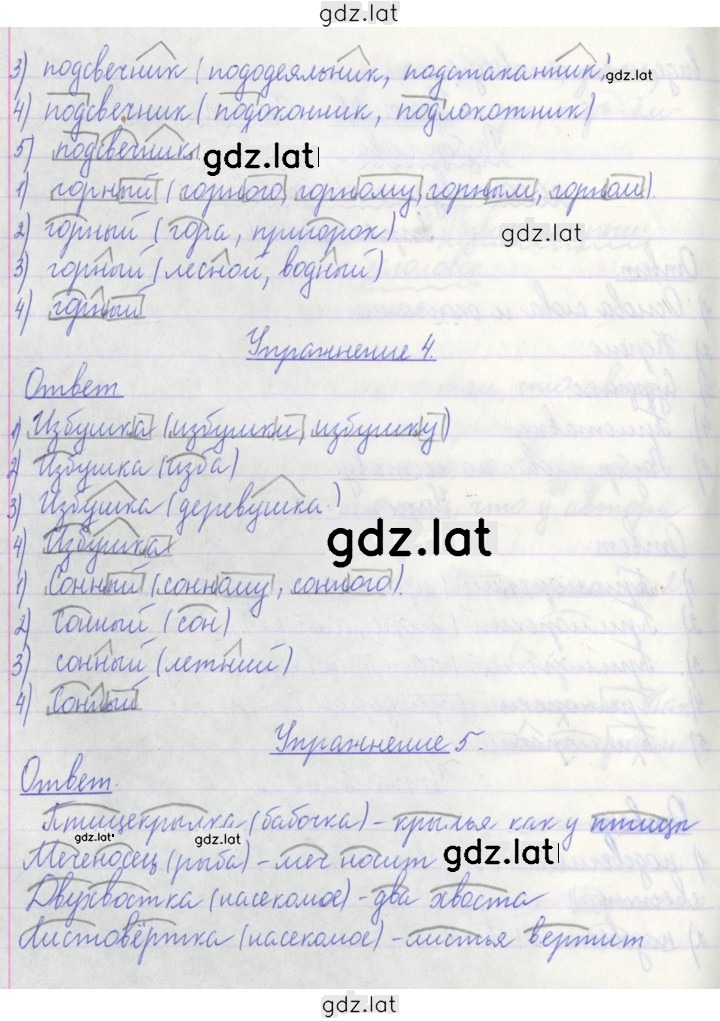 gdz.lat
3) подсвечник (пододеяльник, подстаканник,
gdz.lat
4) подсвечник (подоконник, подлокотник)
5) подсвечник
gdz.lat
1) горный (горного, горному, горным, горном).
2) горный (гора, пригорок)
gdz.lat
3) горный (лесной, водный)
4) горный
Упражнение 4.
Ответ
1) Избушка (избушки, избушку)
2) Избушка (изба)
3) Избушка (деревушка)
4) Избушка
gdz.lat
1) Сонный (сонному, сонного).
2) сонный (сон)
3) сонный (летний)
4) Сонный
Упражнение 5.
Ответ.
Птицекрылка (бабочка) - крылья как у птицы
gdz.lat
gdz.lat
Меченосец (рыба) - меч носит
gdz.lat
Двухвостка (насекомое) - два хвоста
Листовёртка (насекомое) - листья вертит
gdz.lat